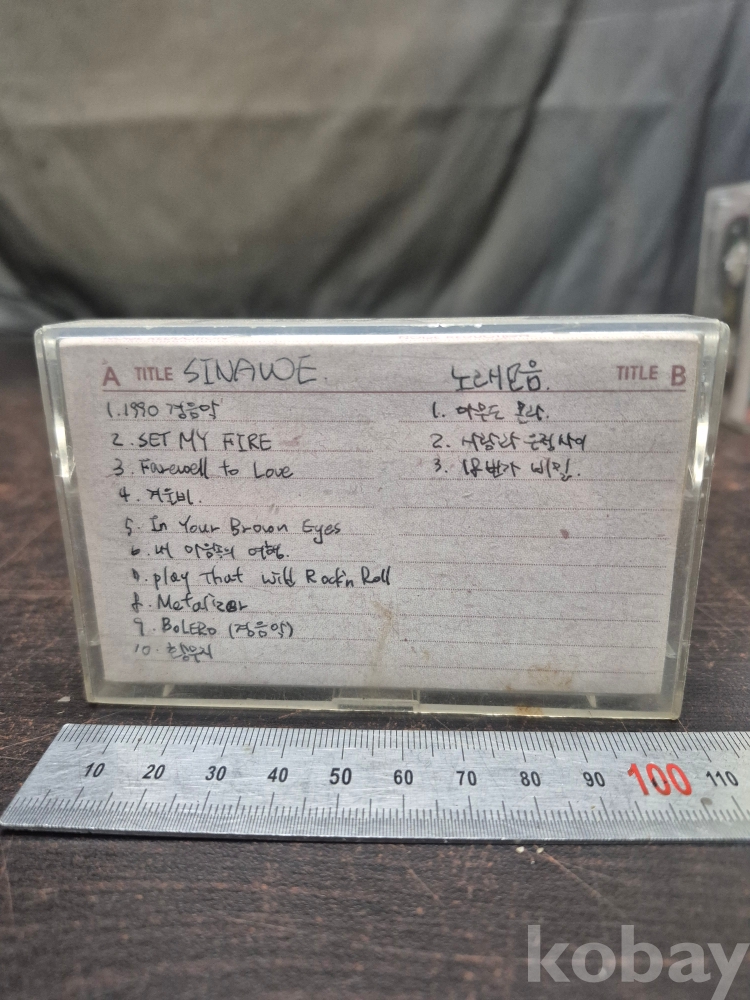 A TITLE SINAWE.
1. 1990 경음악
2. SET MY FIRE
3. Farewell to Love
4. 겨울비.
5. In Your Brown Eyes
6. 내 마음속의 여행.
7. play That Wild Rock'n Roll
8. Metalizer
9. BOLERO (경음악)
10.
노래모음. TITLE B
1. 아무도 몰라.
2. 사랑과 우정사이
3. 18번가 비밀.
10 20 30 40 50 60 70 80 90 100 110
kobay